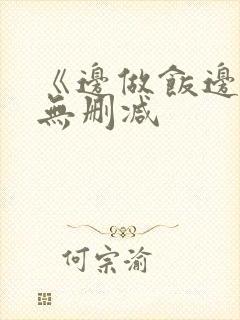 《邊做飯邊
無刪減
何宗渝